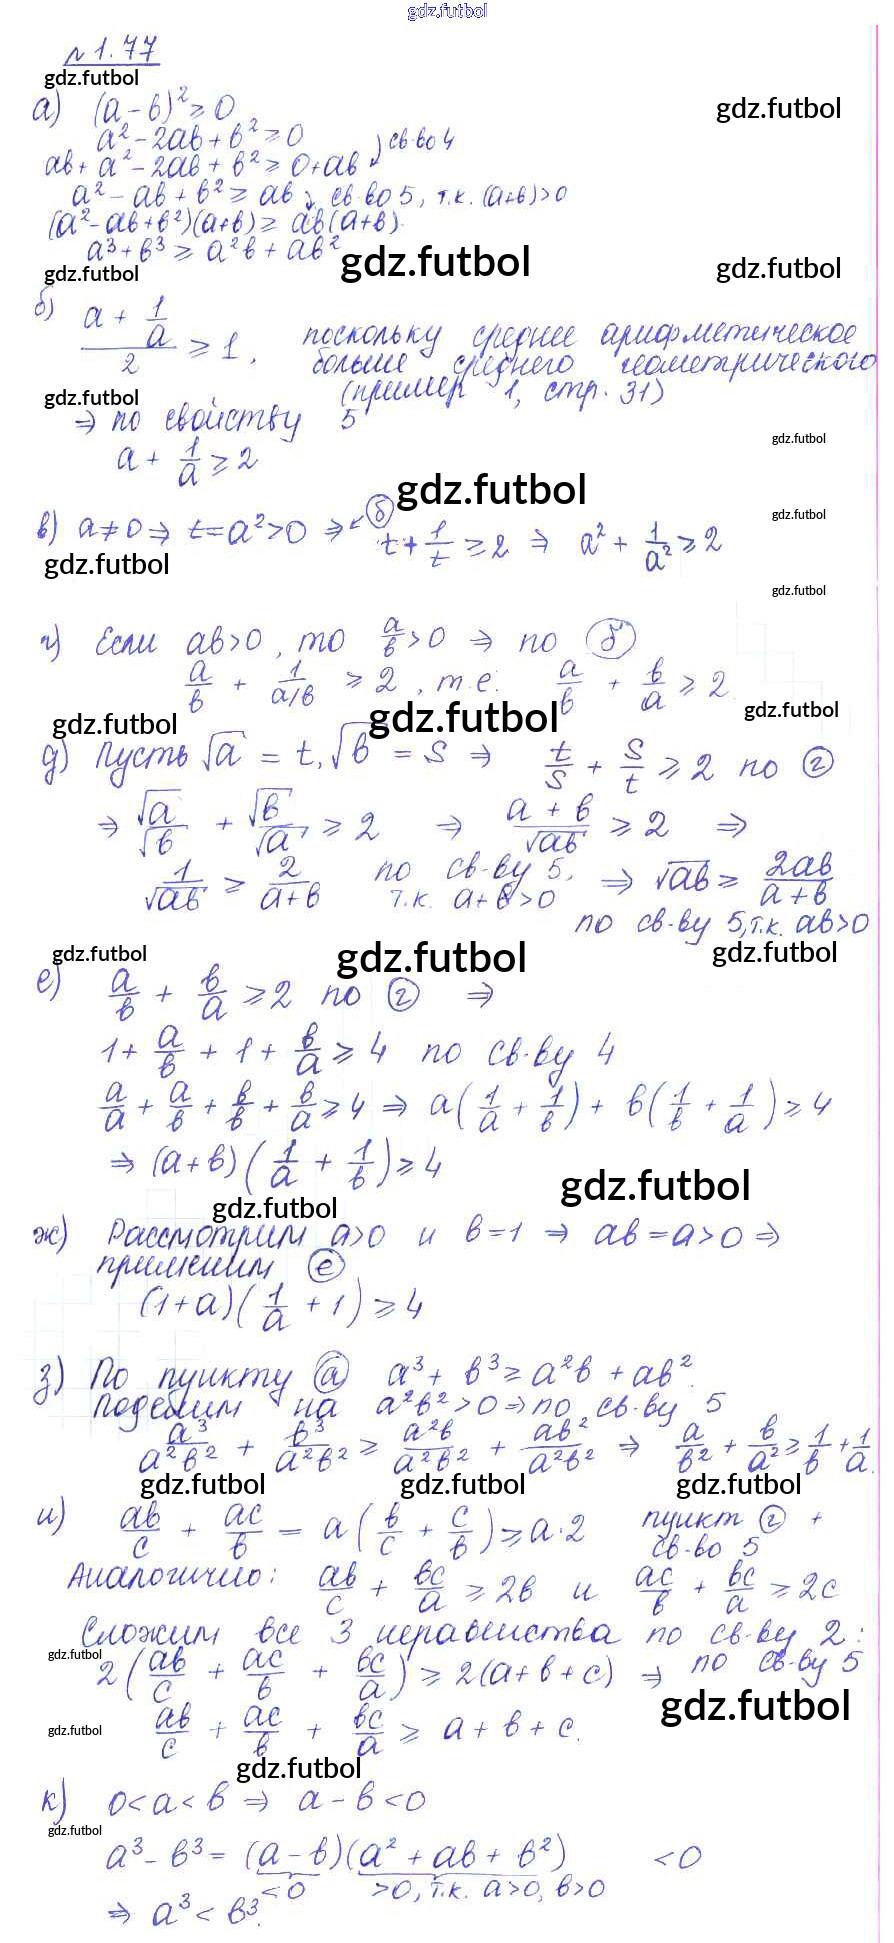 gdz.futbol
№ 1.77
gdz.futbol
а) (a - b)² ≥ 0
gdz.futbol
a² - 2ab + b² ≥ 0
св-во 4
ab + a² - 2ab + b² ≥ 0 + ab
a² - ab + b² ≥ ab ↓ св-во 5, т.к. (a+b) > 0
(a² - ab + b²)(a+b) ≥ ab(a+b)
a³ + b³ ≥ a²b + ab²
gdz.futbol gdz.futbol gdz.futbol
б) (a + 1/a)/2 ≥ 1, поскольку среднее арифметическое
больше среднего геометрического
(пример 1, стр. 31)
gdz.futbol
⇒ по свойству 5
gdz.futbol
a + 1/a ≥ 2
gdz.futbol
gdz.futbol
в) a ≠ 0 ⇒ t = a² > 0 ⇒ б t + 1/t ≥ 2 ⇒ a² + 1/a² ≥ 2
gdz.futbol
gdz.futbol
г) Если ab > 0, то a/b > 0 ⇒ по б
a/b + 1/(a/b) ≥ 2, т.е. a/b + b/a ≥ 2
gdz.futbol gdz.futbol gdz.futbol
д) Пусть √a = t, √b = S ⇒ t/S + S/t ≥ 2 по г
⇒ √a/√b + √b/√a ≥ 2 ⇒ (a + b)/√ab ≥ 2 ⇒
1/√ab ≥ 2/(a+b) по св-ву 5, т.к. a+b > 0 ⇒ √ab ≥ 2ab/(a+b)
по св-ву 5, т.к. ab > 0
gdz.futbol gdz.futbol gdz.futbol
е) a/b + b/a ≥ 2 по г ⇒
1 + a/b + 1 + b/a ≥ 4 по св-ву 4
a/a + a/b + b/b + b/a ≥ 4 ⇒ a(1/a + 1/b) + b(1/b + 1/a) ≥ 4
⇒ (a+b)(1/a + 1/b) ≥ 4
gdz.futbol
gdz.futbol
ж) Рассмотрим a > 0 и b = 1 ⇒ ab = a > 0 ⇒
применим е
(1+a)(1/a + 1) ≥ 4
з) По пункту а a³ + b³ ≥ a²b + ab².
Поделим на a²b² > 0 ⇒ по св-ву 5
a³/a²b² + b³/a²b² ≥ a²b/a²b² + ab²/a²b² ⇒ a/b² + b/a² ≥ 1/b + 1/a.
gdz.futbol gdz.futbol gdz.futbol
и) ab/c + ac/b = a(b/c + c/b) ≥ a·2 пункт г +
св-во 5
Аналогично: ab/c + bc/a ≥ 2b и ac/b + bc/a ≥ 2c
Сложим все 3 неравенства по св-ву 2:
gdz.futbol
2(ab/c + ac/b + bc/a) ≥ 2(a+b+c) ⇒ по св-ву 5
gdz.futbol
gdz.futbol
ab/c + ac/b + bc/a ≥ a + b + c.
gdz.futbol
к) 0 < a < b ⇒ a - b < 0
gdz.futbol
a³ - b³ = (a - b)(a² + ab + b²) < 0
< 0 > 0, т.к. a > 0, b > 0
⇒ a³ < b³.